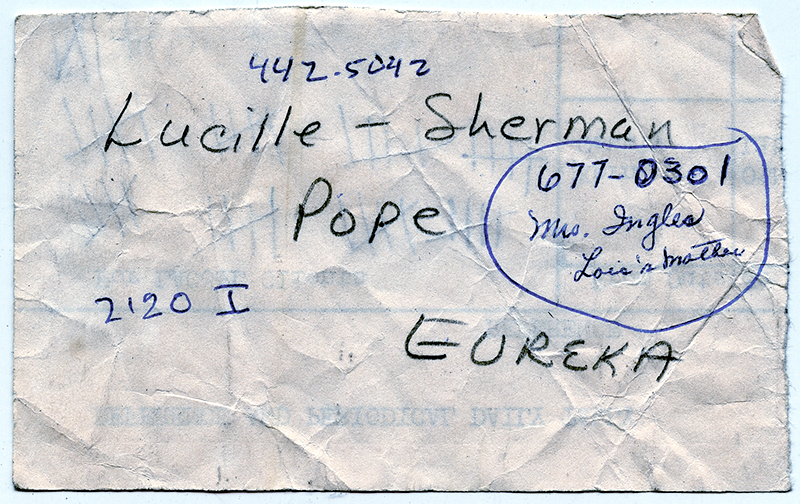 442-5042
Lucille - Sherman
Pope
677-0301
Mrs. Ingles
Lois's Mother
2120 I
EUREKA